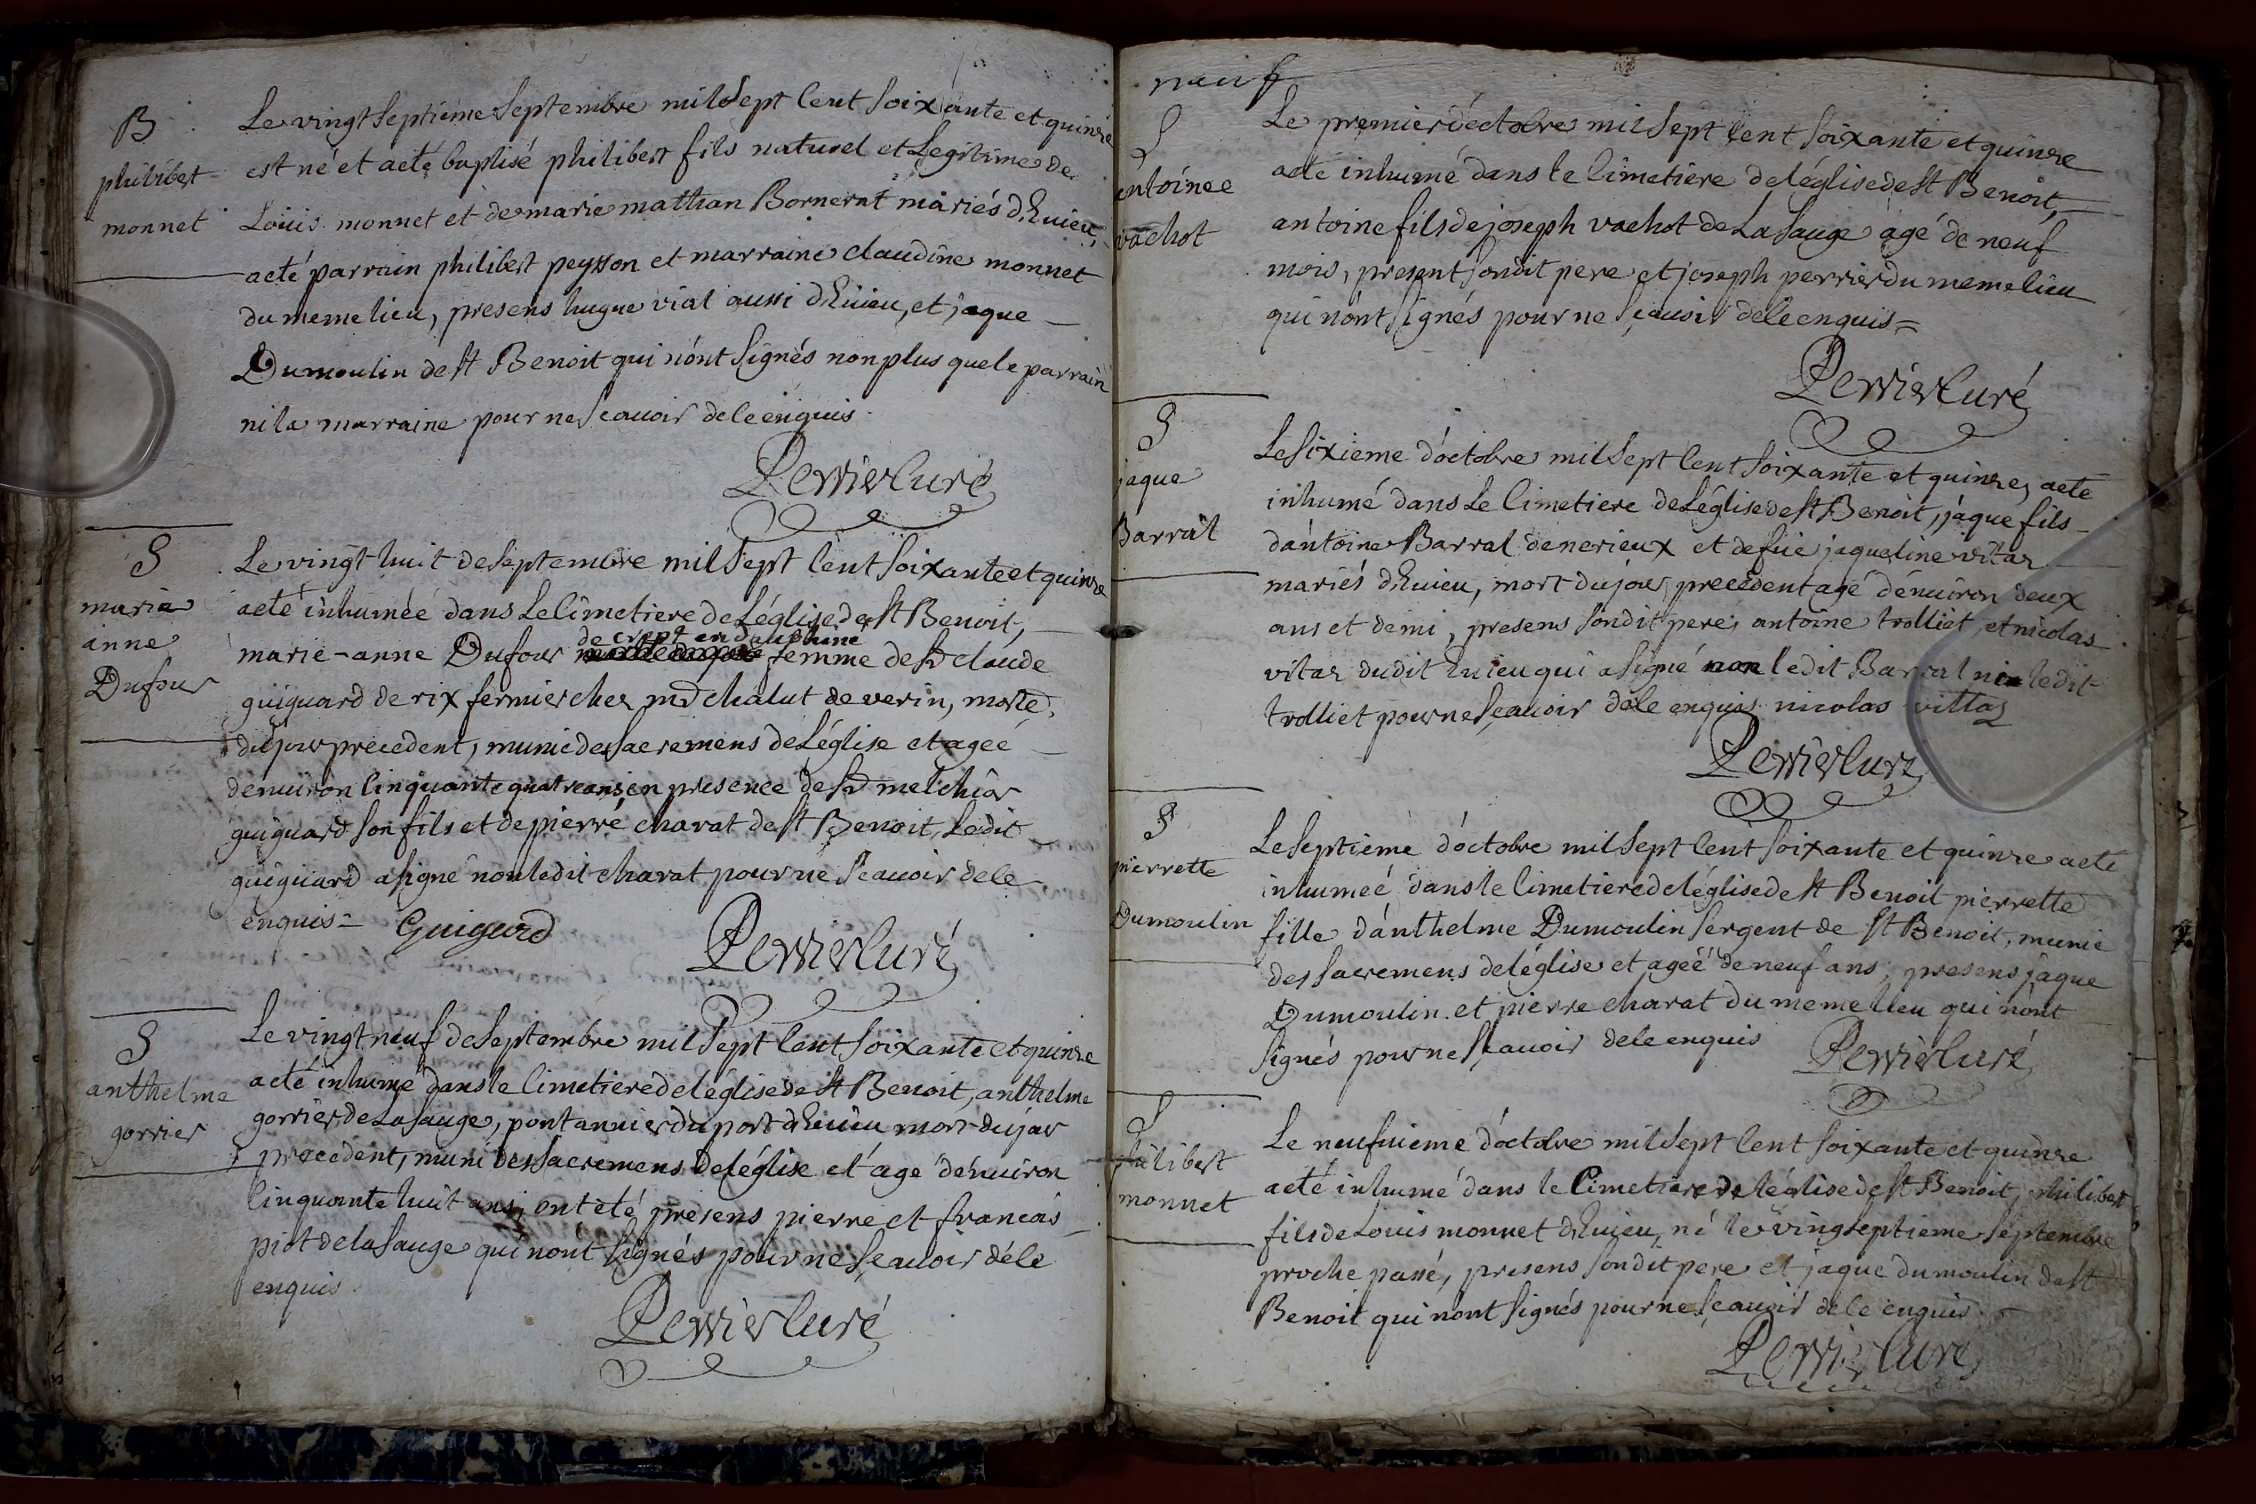 B
philibert
monnet
Le vingt septieme septembre mil sept cent soixante et quinze
est né et aeté baptisé philibert fils naturel et Legitime de
Loüis monnet et de marie mathan Bornerat mariés dhuieu,
aeté parrain philibert peysson et marraine claudine monnet
du meme lieu, presens hugue vial aussi dhuieu, et jaque
Dumoulin de st Benoit qui nónt signés non plus que le parrain
ni la marraine pour ne scauoir de ce enquis.
Perrier Curé
S
marie
anne
Dufour
Le vingt huit de septembre mil sept cent soixante et quinze
aeté inhumée dans Le cimetiere de Léglise de st Benoit,
de crept en dauphine
marie-anne Dufour femme de sr claude
guiguard de rix fermier chez mr chalut de verin, morte
du jour precedent, munie des sacremens de Léglise et ageé
denuiron cinquante quatre ans, en presence de sr melchior
guiguard son fils et de pierre charat de st Benoit, Ledit
guiguard a signé non ledit charat pour ne scauoir de ce
enquis = Guigard
Perrier Curé
S
anthelme
gorrier
Le vingt neuf de septembre mil sept cent soixante et quinze
aeté inhumé dans le cimetiere de léglise de st Benoit, anthelme
gorrier de La sauge, pontannier du port dhuieu mort du jour
precedent, muni des sacremens de léglise et agé dénuiron
cinquante huit ans, ont eté presens pierre et francois
piot de la sauge qui nónt signés pour ne scauoir dé ce
enquis
Perrier Curé
neuf
S
antoinee
vachot
Le premier d'octobre mil sept cent soixante et quinze
aeté inhumé dans le cimetiere de léglise de st Benoit,
antoine fils de joseph vachot de La sauge agé de neuf
mois, present sondit pere et joseph perrier du meme lieu
qui nónt signés pour ne scauoir de ce enquis =
Perrier Curé
S
jaque
Barral
Le sixieme d'octobre mil sept cent soixante et quinze, aeté
inhumé dans Le cimetiere de Léglise de st Benoit, jaque fils
dántoine Barral de nerieux et de füe jaqueline vitaz
mariés dhuieu, mort du jour precedent agé dénuiron deux
ans et demi, presens sondit pere, antoine trolliet, et nicolas
vitaz dudit huieu qui a signé non ledit Barral ni ledit
trolliet pour ne scauoir de ce enquis nicolas vittaz
Perrier Curé
S
pierrette
Dumoulin
Le septieme d'octobre mil sept cent soixante et quinze aeté
inhumeé dans le cimetiere de léglise de st Benoit pierrette
fille dánthelme Dumoulin sergent de st Benoit, munie
des sacremens de léglise et ageé de neuf ans, presens jaque
Dumoulin et pierre charat du meme lieu qui nont
signés pour ne scauoir de ce enquis
Perrier Curé
S
philibert
monnet
Le neufuieme d'octobre mil sept cent soixante et quinze
aeté inhumé dans le Cimetiere de léglise de st Benoit, philibert
fils de Louis monnet dhuieu, né le vingseptieme septembre
proche passé, presens sondit pere et jaque dumoulin de st
Benoit qui nont signés pour ne scauoir de ce enquis
Perrier Curé